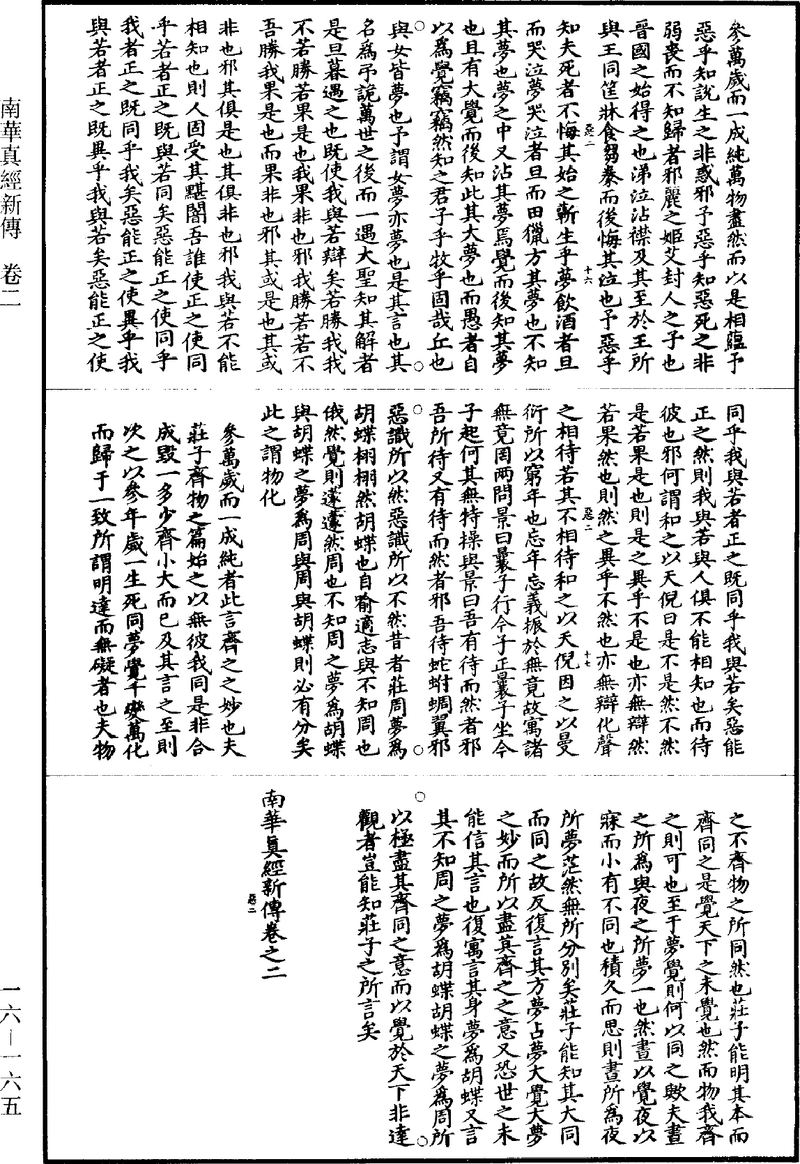 南華真經新傳　卷二
參萬歲而一成純萬物盡然而以是相蘊予
惡乎知說生之非惑邪予惡乎知惡死之非
弱喪而不知歸者邪麗之姬艾封人之子也
晉國之始得之也涕泣沾襟及其至於王所
與王同筐牀食芻豢而後悔其泣也予惡乎
知夫死者不悔其始之蘄生乎夢飲酒者旦
而哭泣夢哭泣者旦而田獵方其夢也不知
其夢也夢之中又沾其夢焉覺而後知其夢
也且有大覺而後知此其大夢也而愚者自
以為覺竊竊然知之君子乎牧乎固哉丘也
與女皆夢也予謂女夢亦夢也是其言也其
名為弔詭萬世之後而一遇大聖知其解者
是旦暮遇之也既使我與若辯矣若勝我我
不若勝若果是也我果非也邪我勝若若不
吾勝我果是也而果非也邪其或是也其或
非也邪其俱是也其俱非也邪我與若不能
相知也則人固受其黮闇吾誰使正之使同
乎若者正之既與若同矣惡能正之使同乎
我者正之既同乎我矣惡能正之使異乎我
與若者正之既異乎我與若矣惡能正之使
同乎我與若者正之既同乎我與若矣惡能
正之然則我與若與人俱不能相知也而待
彼也邪何謂和之以天倪曰是不是然不然
是若果是也則是之異乎不是也亦無辯然
若果然也則然之異乎不然也亦無辯化聲
之相待若其不相待和之以天倪因之以曼
衍所以窮年也忘年忘義振於無竟故寓諸
無竟罔兩問景曰曩子行今子止曩子坐今
子起何其無特操與景曰吾有待而然者邪
吾所待又有待而然者邪吾待蛇蚹蜩翼邪
惡識所以然惡識所以不然昔者莊周夢為
胡蝶栩栩然胡蝶也自喻適志與不知周也
俄然覺則蘧蘧然周也不知周之夢為胡蝶
與胡蝶之夢為周與周與胡蝶則必有分矣
此之謂物化
參萬歲而一成純者此言齊之之妙也夫
莊子齊物之篇始之以無彼我同是非合
成毀一多少齊小大而已及其言之至則
次之以參年歲一生死同夢覺千變萬化
而歸于一致所謂明達而無礙者也夫物
之不齊物之所同然也莊子能明其本而
齊同之是覺天下之未覺也然而物我齊
之則可也至于夢覺則何以同之歟夫晝
之所為與夜之所夢一也然晝以覺夜以
寐而小有不同也積久而思則晝所為夜
所夢茫然無所分別矣莊子能知其大同
而同之故反復言其方夢占夢大覺大夢
之妙而所以盡其齊之之意又恐世之未
能信其言也復寓言其身夢為胡蝶又言
其不知周之夢為胡蝶胡蝶之夢為周所
以極盡其齊同之意而以覺於天下非達
觀者豈能知莊子之所言矣
南華真經新傳卷之二
一六—一六五